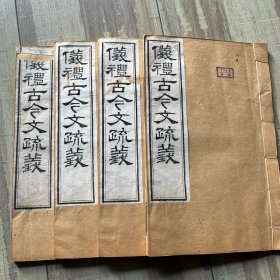 儀禮古今文疏義
儀禮古今文疏義
儀禮古今文疏義
儀禮古今文疏義